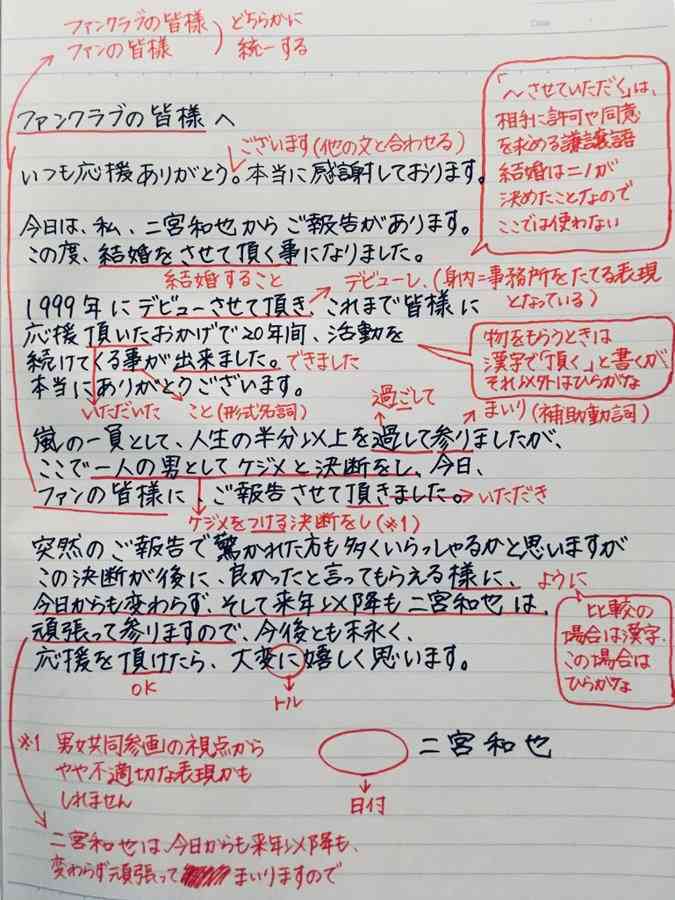 ファンクラブの皆様
ファンの皆様
どちらかに
統一する
「～させていただく」は、
相手に許可や同意
を求める謙譲語
結婚はニノが
決めたことなので
ここでは使わない
ファンクラブの皆様へ
ございます(他の文と合わせる)
いつも応援ありがとう。本当に感謝しております。
今日は、私、二宮和也からご報告があります。
この度、結婚をさせて頂く事になりました。
結婚すること
デビューし、(身内=事務所をたてる表現
となっている)
1999年にデビューさせて頂き、これまで皆様に
応援頂いたおかげで20年間、活動を
続けてくる事が出来ました。できました
本当にありがとうございます。
物をもらうときは
漢字で「頂く」と書くが
それ以外はひらがな
いただいた
こと(形式名詞)
過ごして
まいり(補助動詞)
嵐の一員として、人生の半分以上を過して参りましたが、
ここで一人の男としてケジメと決断をし、今日、
ファンの皆様に、ご報告させて頂きました。いただき
ケジメをつける決断をし(※1)
突然のご報告で驚かれた方も多くいらっしゃるかと思いますが
この決断が後に、良かったと言ってもらえる様に、ように
今日からも変わらず、そして来年以降も二宮和也は、
頑張って参りますので、今後とも末永く、
応援を頂けたら、大変に嬉しく思います。
比較の
場合は漢字、
この場合は
ひらがな
OK
トル
※1 男女共同参画の視点から
やや不適切な表現かも
しれません
二宮和也
日付
二宮和也は、今日からも来年以降も、
変わらず頑張って
まいりますので